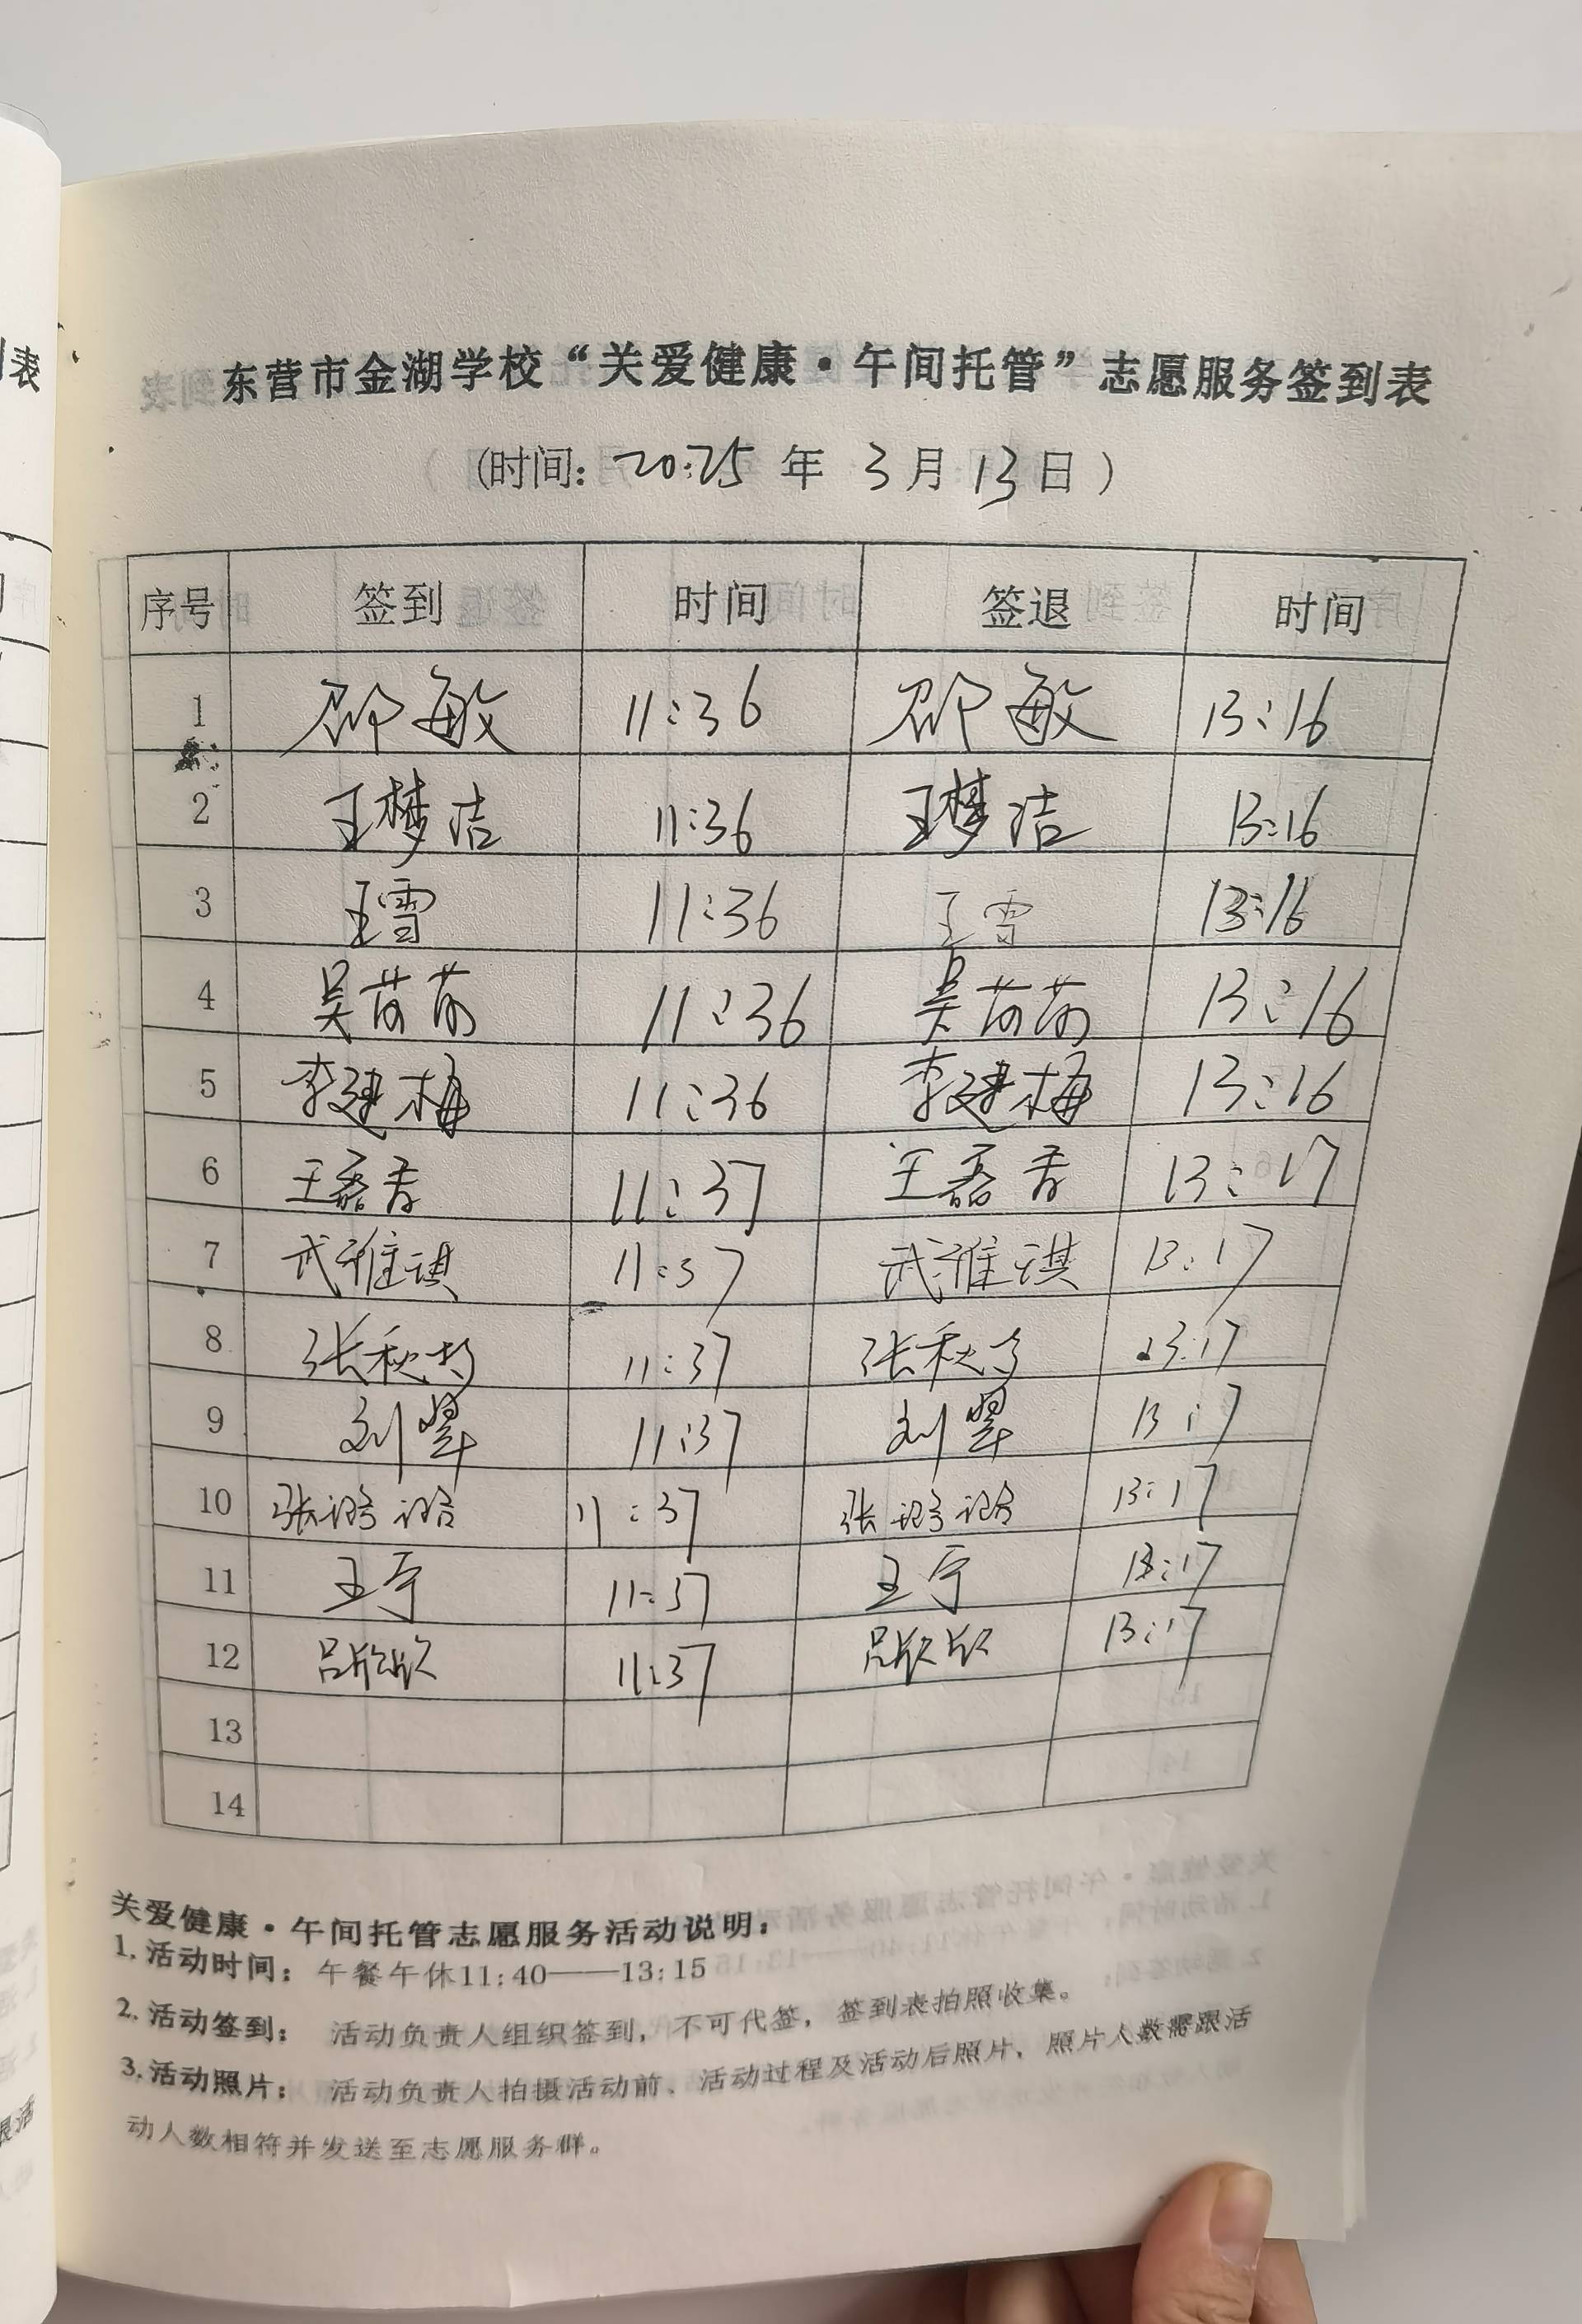 东营市金湖学校“关爱健康·午间托管”志愿服务签到表
(时间: 2025 年 3 月 13 日)
序号 签到 时间 签退 时间
1 邵敏 11:36 邵敏 13:16
2 王梦洁 11:36 王梦洁 13:16
3 王雪 11:36 王雪 13:16
4 吴芮芮 11:36 吴芮芮 13:16
5 李建梅 11:36 李建梅 13:16
6 王磊香 11:37 王磊香 13:17
7 武雅琪 11:37 武雅琪 13:17
8 张秋 11:37 张秋 13:17
9 刘翠 11:37 刘翠 13:17
10 张璐璐 11:37 张璐璐 13:17
11 王宁 11:37 王宁 13:17
12 吕欣欣 11:37 吕欣欣 13:17
13
14
关爱健康·午间托管志愿服务活动说明:
1.活动时间: 午餐午休11:40——13:15
2.活动签到: 活动负责人组织签到, 不可代签, 签到表拍照收集。
3.活动照片: 活动负责人拍摄活动前、活动过程及活动后照片, 照片人数需跟活
动人数相符并发送至志愿服务群。